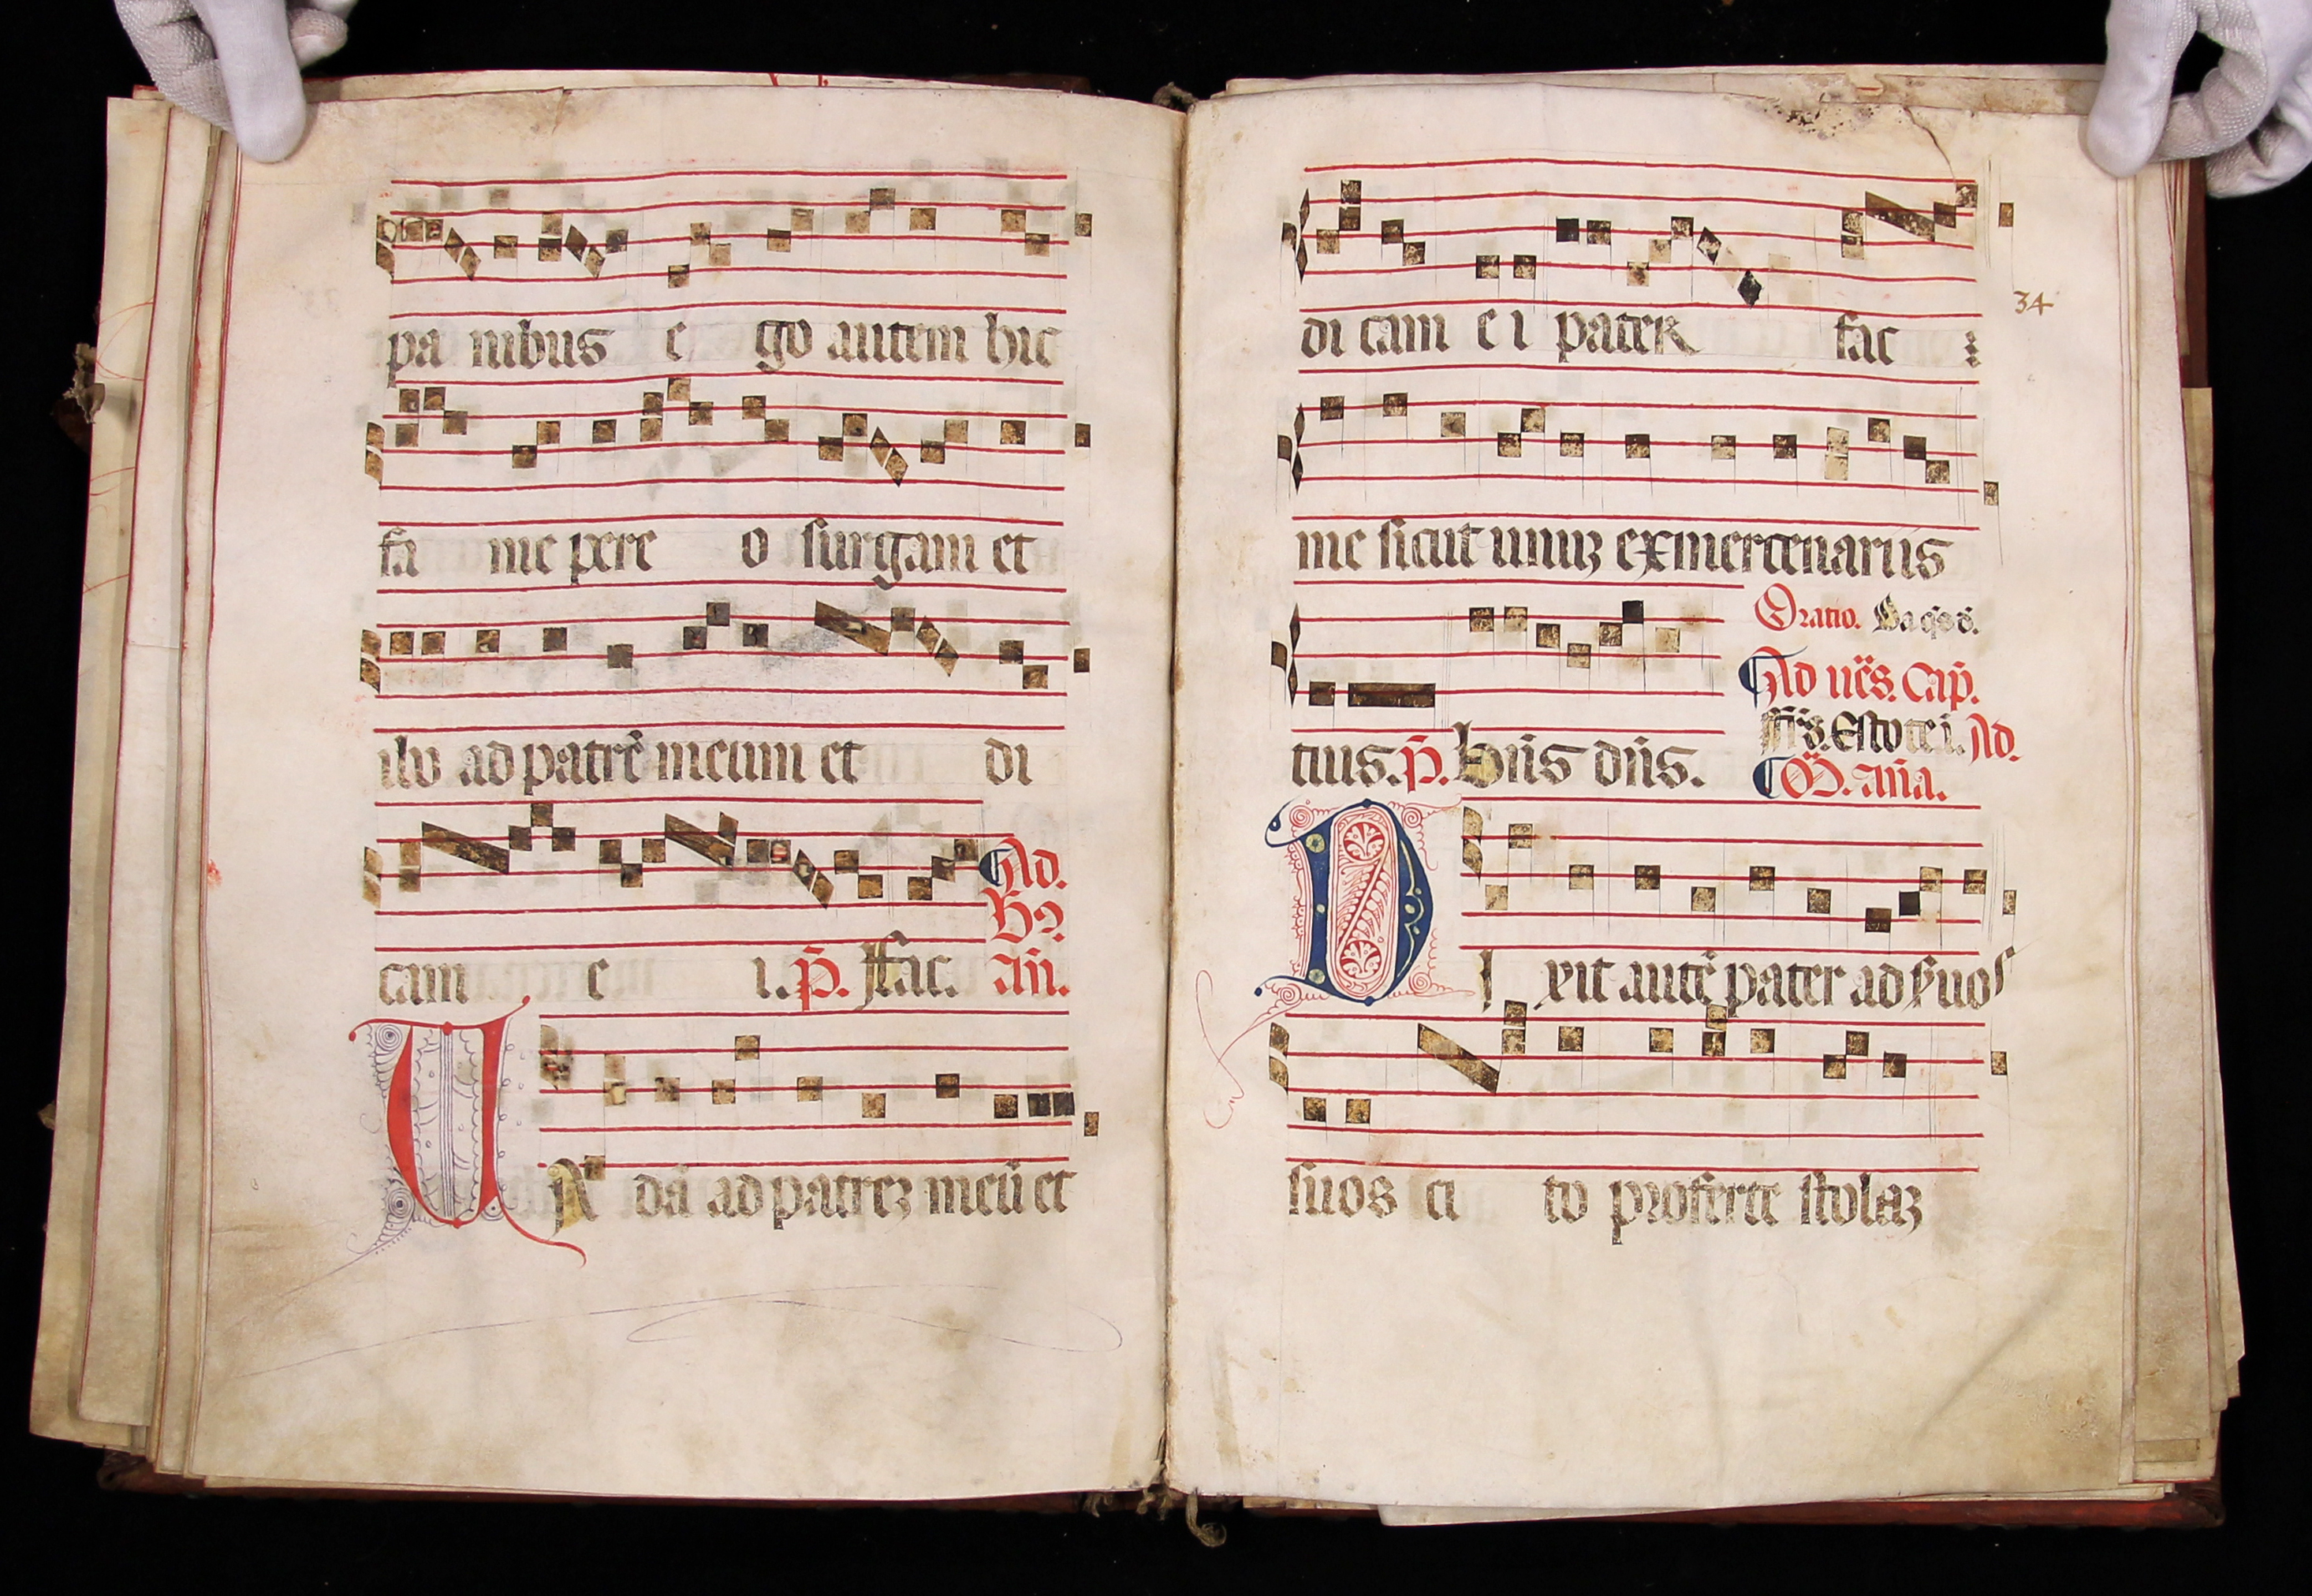 pa nibus e go autem hic
fa me pere o surgam et
ibo ad patrē meum et di
cam e i. p̄. ffac.
Ad.
añ.
U A dā ad patreꝫ meū et
34
di cam e i pater fac
me sicut unuꝫ ex mercenariis
tuis. p̄. Bñs dñs.
Oratio.
Ad
Cap̄.
Estote i. Ad.
aña.
D I xit autē pater ad suos
suos ci to proferte stolaꝫ